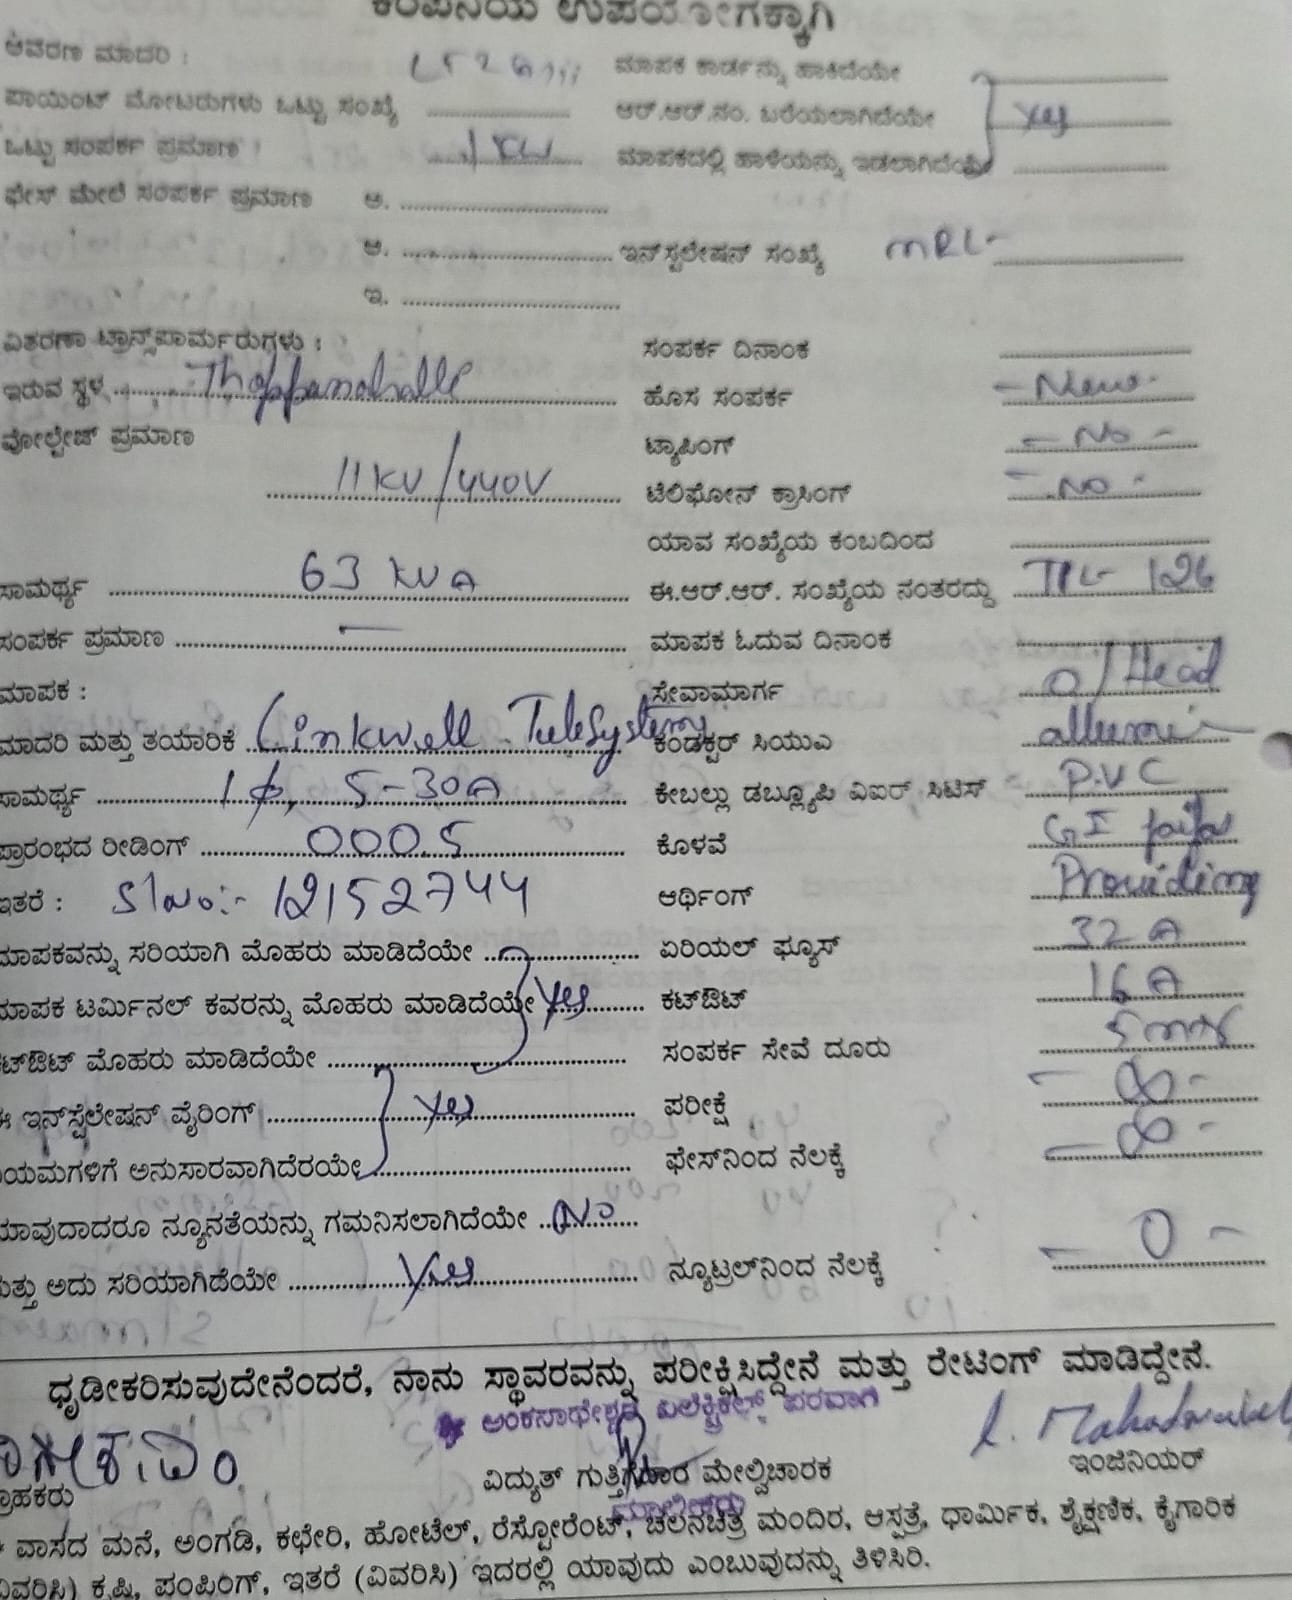 ಕಂಪನಿಯ ಉಪಯೋಗಕ್ಕಾಗಿ
ಆವರಣ ಮಾದರಿ : ಮಾಪಕ ಕಾರ್ಡನ್ನು ಹಾಕಿದೆಯೇ
ಪಾಯಿಂಟ್ ಮೋಟರುಗಳು ಒಟ್ಟು ಸಂಖ್ಯೆ ಆರ್.ಆರ್.ನಂ. ಬರೆಯಲಾಗಿದೆಯೇ Yes
ಒಟ್ಟು ಸಂಪರ್ಕ ಪ್ರಮಾಣ : 1KW ಮಾಪಕದಲ್ಲಿ ಹಾಳೆಯನ್ನು ಇಡಲಾಗಿದೆಯೇ
ಫೇಸ್ ಮೇಲೆ ಸಂಪರ್ಕ ಪ್ರಮಾಣ ಅ.
ಆ. ಇನ್‌ಸ್ಟಲೇಷನ್ ಸಂಖ್ಯೆ MRL-
ಇ.
ವಿತರಣಾ ಟ್ರಾನ್ಸ್‌ಪಾರ್ಮರುಗಳು : ಸಂಪರ್ಕ ದಿನಾಂಕ
ಇರುವ ಸ್ಥಳ Thoppanahalle ಹೊಸ ಸಂಪರ್ಕ - New -
ವೋಲ್ಟೇಜ್ ಪ್ರಮಾಣ ಟ್ಯಾಪಿಂಗ್ - No -
11KV/440V ಟೆಲಿಫೋನ್ ಕ್ರಾಸಿಂಗ್ - No -
ಯಾವ ಸಂಖ್ಯೆಯ ಕಂಬದಿಂದ
ಸಾಮರ್ಥ್ಯ 63 KVA ಈ.ಆರ್.ಆರ್. ಸಂಖ್ಯೆಯ ನಂತರದ್ದು 126
ಸಂಪರ್ಕ ಪ್ರಮಾಣ — ಮಾಪಕ ಓದುವ ದಿನಾಂಕ
ಮಾಪಕ : ಸೇವಾಮಾರ್ಗ O/Head
ಮಾದರಿ ಮತ್ತು ತಯಾರಿಕೆ Linkwell TeleSystems ಕಂಡಕ್ಟರ್ ಸಿಯುಎ
ಸಾಮರ್ಥ್ಯ 1ϕ, 5-30A ಕೇಬಲ್ಲು ಡಬ್ಲ್ಯೂಪಿ ವಿಐರ್ ಸಿಟಿಸ್ P.V.C
ಪ್ರಾರಂಭದ ರೀಡಿಂಗ್ 000.5 ಕೊಳವೆ GI
ಇತರೆ : Sl No:- 12152744 ಆರ್ಥಿಂಗ್ Providing
ಮಾಪಕವನ್ನು ಸರಿಯಾಗಿ ಮೊಹರು ಮಾಡಿದೆಯೇ ಏರಿಯಲ್ ಫ್ಯೂಸ್ 32A
ಮಾಪಕ ಟರ್ಮಿನಲ್ ಕವರನ್ನು ಮೊಹರು ಮಾಡಿದೆಯೇ Yes ಕಟ್‌ಔಟ್ 16A
ಕಟ್‌ಔಟ್ ಮೊಹರು ಮಾಡಿದೆಯೇ ಸಂಪರ್ಕ ಸೇವೆ ದೂರು
ಈ ಇನ್‌ಸ್ಟೆಲೇಷನ್ ವೈರಿಂಗ್ Yes ಪರೀಕ್ಷೆ - ∞ -
ಯಮಗಳಿಗೆ ಅನುಸಾರವಾಗಿದೆರಯೇ ಫೇಸ್‌ನಿಂದ ನೆಲಕ್ಕೆ - ∞ -
ಯಾವುದಾದರೂ ನ್ಯೂನತೆಯನ್ನು ಗಮನಿಸಲಾಗಿದೆಯೇ No
ಮತ್ತು ಅದು ಸರಿಯಾಗಿದೆಯೇ Yes ನ್ಯೂಟ್ರಲ್‌ನಿಂದ ನೆಲಕ್ಕೆ - 0 -
ಧೃಡೀಕರಿಸುವುದೇನೆಂದರೆ, ನಾನು ಸ್ಥಾವರವನ್ನು ಪರೀಕ್ಷಿಸಿದ್ದೇನೆ ಮತ್ತು ರೇಟಿಂಗ್ ಮಾಡಿದ್ದೇನೆ.
ಅಂಕನಾಥೇಶ್ವರ ಎಲೆಕ್ಟ್ರಿಕಲ್ಸ್ ಪರವಾಗಿ
ಗ್ರಾಹಕರು ವಿದ್ಯುತ್ ಗುತ್ತಿಗೆದಾರ ಮೇಲ್ವಿಚಾರಕ ಇಂಜಿನಿಯರ್
ಮಾಲೀಕರು
* ವಾಸದ ಮನೆ, ಅಂಗಡಿ, ಕಛೇರಿ, ಹೋಟೆಲ್, ರೆಸ್ಟೋರೆಂಟ್, ಚಲನಚಿತ್ರ ಮಂದಿರ, ಆಸ್ಪತ್ರೆ, ಧಾರ್ಮಿಕ, ಶೈಕ್ಷಣಿಕ, ಕೈಗಾರಿಕ
(ವಿವರಿಸಿ) ಕೃಷಿ, ಪಂಪಿಂಗ್, ಇತರೆ (ವಿವರಿಸಿ) ಇದರಲ್ಲಿ ಯಾವುದು ಎಂಬುವುದನ್ನು ತಿಳಿಸಿರಿ.